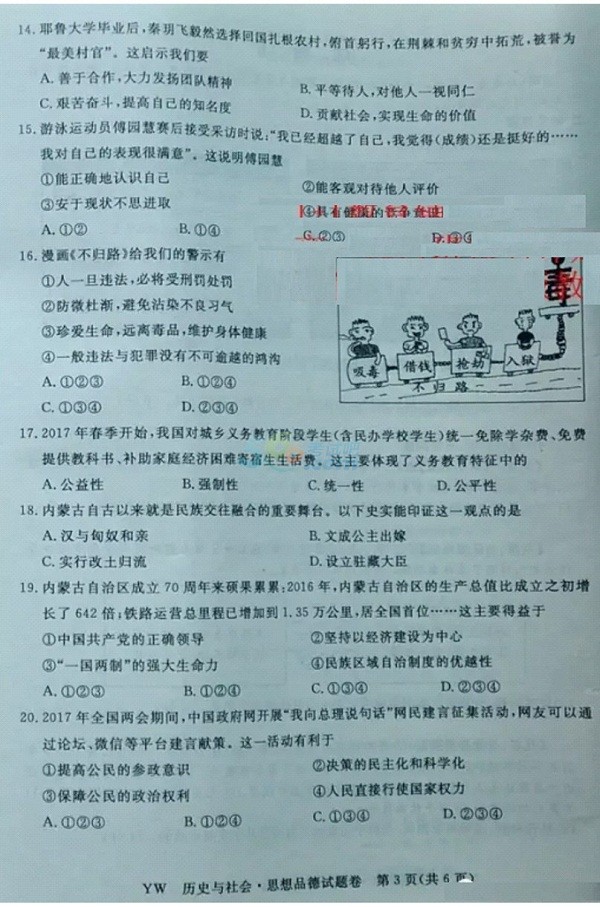 14. 耶鲁大学毕业后，秦玥飞毅然选择回国扎根农村，俯首躬行，在荆棘和贫穷中拓荒，被誉为
“最美村官”。这启示我们要
A. 善于合作，大力发扬团队精神
B. 平等待人，对他人一视同仁
C. 艰苦奋斗，提高自己的知名度
D. 贡献社会，实现生命的价值
15. 游泳运动员傅园慧赛后接受采访时说：“我已经超越了自己，我觉得(成绩)还是挺好的……
我对自己的表现很满意”。这说明傅园慧
①能正确地认识自己
②能客观对待他人评价
③安于现状不思进取
④具有健康的竞争
A. ①②
B. ①④
C. ②③
D.
16. 漫画《不归路》给我们的警示有
①人一旦违法，必将受刑罚处罚
②防微杜渐，避免沾染不良习气
③珍爱生命，远离毒品，维护身体健康
④一般违法与犯罪没有不可逾越的鸿沟
A. ①②③
B. ①②④
C. ①③④
D. ②③④
毒
吸毒 借钱 抢劫 入狱
不归路
17. 2017 年春季开始，我国对城乡义务教育阶段学生(含民办学校学生)统一免除学杂费、免费
提供教科书、补助家庭经济困难寄宿生生活费。这主要体现了义务教育特征中的
A. 公益性
B. 强制性
C. 统一性
D. 公平性
18. 内蒙古自古以来就是民族交往融合的重要舞台。以下史实能印证这一观点的是
A. 汉与匈奴和亲
B. 文成公主出嫁
C. 实行改土归流
D. 设立驻藏大臣
19. 内蒙古自治区成立 70 周年来硕果累累：2016 年，内蒙古自治区的生产总值比成立之初增
长了 642 倍；铁路运营总里程已增加到 1.35 万公里，居全国首位……这主要得益于
①中国共产党的正确领导
②坚持以经济建设为中心
③“一国两制”的强大生命力
④民族区域自治制度的优越性
A. ①②③
B. ①②④
C. ①③④
D. ②③④
20. 2017 年全国两会期间，中国政府网开展“我向总理说句话”网民建言征集活动，网友可以通
过论坛、微信等平台建言献策。这一活动有利于
①提高公民的参政意识
②决策的民主化和科学化
③保障公民的政治权利
④人民直接行使国家权力
A. ①②③
B. ①②④
C. ①③④
D. ②③④
YW 历史与社会·思想品德试题卷 第 3 页(共 6 页)